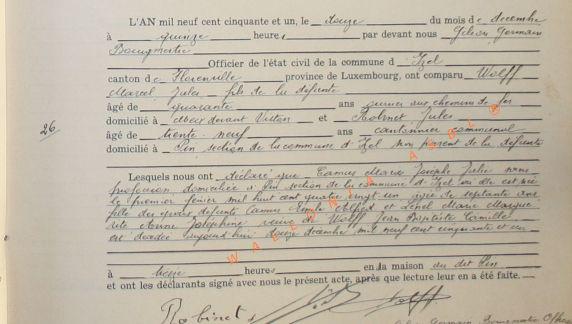 L'AN mil neuf cent cinquante et un, le douze du mois de décembre
à quinze heures par devant nous Gilson Germain
Bourgmestre
Officier de l'état civil de la commune d'Izel
canton de Florenville province de Luxembourg, ont comparu Wolff
Marcel Jules fils de la défunte
âgé de quarante ans ouvrier aux chemins de fer
domicilié à Meix devant Virton et Robinet Jules
26
âgé de trente-neuf ans cantonnier communal
domicilié à Pin section de la commune d'Izel non parent de la défunte
Lesquels nous ont déclaré que Camus Marie Josèphe Julie sans
profession domiciliée à Pin section de la commune d'Izel où elle est née
le premier février mil huit cent quatre vingt un âgée de septante ans
fille des époux défunts Camus Emile Alfred et Marie Margue
rite Anne Joséphine veuve de Wolff Jean Baptiste Camille
est décédée aujourd'hui douze décembre mil neuf cent cinquante et un
à heures en la maison au dit Pin
et ont les déclarants signé avec nous le présent acte, après que lecture leur en a été faite.
Robinet J Wolff
Germain